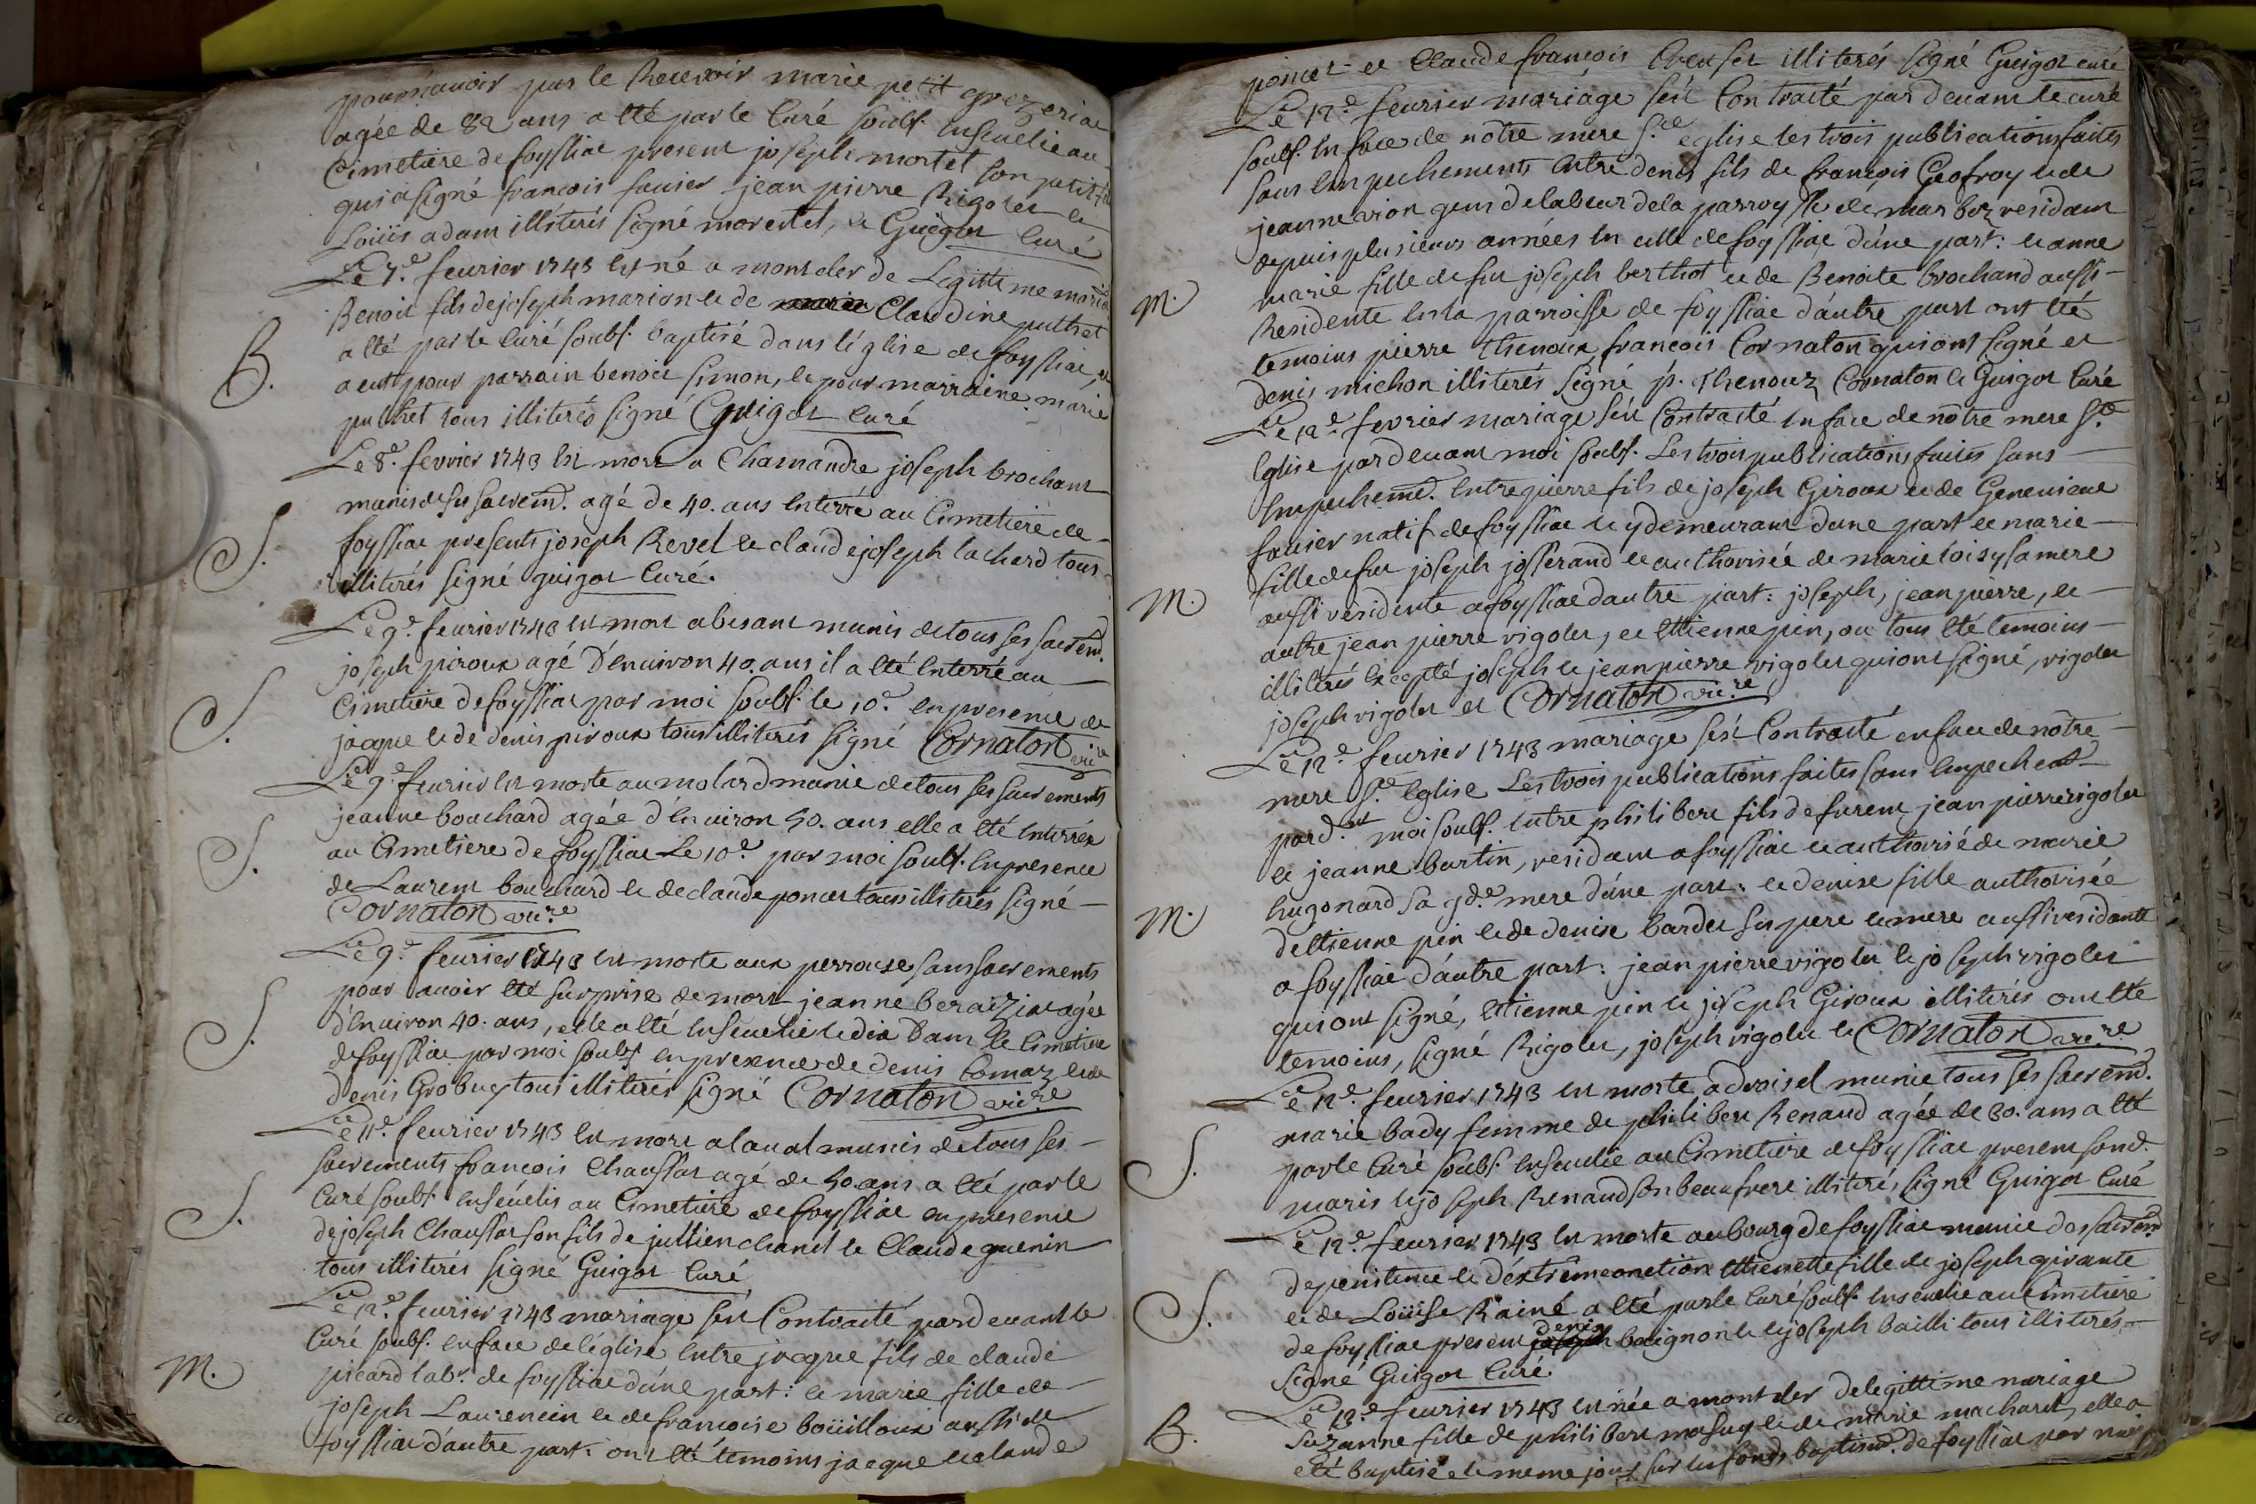 pour n'avoir pus le Recevoir marie petit
agée de 82 ans a été par le Curé soubs. Enseuelie au
Cimetiere de foyssiac present joseph mortel son petit
qui a signé francois fauier jean pierre Rigolet et
Loüis adam illiterés signé mortel, et Guigot Curé
Le 7.e feurier 1743 est né a montcler de Legittime mariage
B. Benoit fils de joseph marion et de Claudine puthet
a été par le Curé soubs. baptisé dans l'église de foyssiac, et
a eut pour parrain benoit simon, et pour marraine marie
puthet tous illiterés signé Guigot Curé
Le 8.e fevrier 1743 est mort a Chamandre joseph brochant
S. munis de ses sacremt. agé de 40. ans Enterré au Cimetiere de
foyssiac presents joseph Revel et claude joseph lachard tous
illiterés signé guigot Curé.
Le 9.e feurier 1743 est mort a besant munis de tous ses sacremt.
S. joseph piroux agé D'enuiron 40. ans il a été Enterré au
Cimetiere de foyssiac par moi soubs. le 10.e en presence de
jacque et de denis piroux tous illiterés signé Cornaton vic.re
Le 9.e feurier est morte au molard munie de tous ses sacrements
S. jeanne bouchard agée d'enuiron 50. ans elle a été Enterrée
au Cimetiere de foyssiac Le 10.e par moi soubs. En presence
de Laurent bouchard et de claude poncet tous illiterés signé
Cornaton vic.re
Le 9.e feurier 1743 est morte aux perrouse sans sacrements
S. pour auoir été surprise de mort jeanne beraiziat agée
d'Enuiron 40. ans, elle a été Enseuelie le dix Dans le Cimetiere
de foyssiac par moi soubs en presence de denis Comaz et de
denis Grobuey tous illiterés signé Cornaton vic.re
Le 11.e feurier 1743 est mort a laual munis de tous ses
sacrements francois Chaussat agé de 50. ans a été par le
S. Curé soubs. Enseuelis au Cimetiere de foyssiac en presence
de joseph Chaussat son fils de jullien chanel et Claude guenin
tous illiterés signé Guigot Curé
Le 12.e feurier 1743 mariage s'est Contracté pard euant le
Curé soubs. en face de l'église Entre jacque fils de claude
M. picard labr. de foyssiac d'une part: et marie fille de
joseph Laurencin et de francoise boüilloux aussi de
foyssiac d'autre part: ont été temoins jacque et claude
poncet et Claude francois Creuset illiterés signé Guigot curé
Le 12.e feurier mariage s'est Contracté par deuant le curé
soubs. En face de nôtre mere S.te eglise les trois publications faites
sans Empechements Entre denis fils de francois Geofroy et de
jeanne vion gens de labeur de la parroysse de marboz residant
depuis plusieurs années En celle de foyssiac d'une part: et anne
M. marie fille de feu joseph berthot et de Benoite brochand aussi
Residente En la parroisse de foyssiac d'autre part ont été
temoins pierre thenoux francois Cornaton qui ont signé et
denis michon illiterés signé p. thenouz Cornaton et Guigot Curé
Le 12.e fevrier mariage s'est Contracté En face de nôtre mere S.te
Eglise pard euant moi soubs. Les trois publications faites sans
Empechemt. Entre pierre fils de joseph Giroux et de Geneuieue
fauier natif de foyssiac et y demeurant d'une part et marie
fille de feu joseph josserand et authorisée de marie loisy sa mere
M. aussi residente a foyssiac d'autre part: joseph, jean pierre, et
autre jean pierre rigolet, et Ettienne pin, ont tous été temoins
illiterés Excepté joseph et jean pierre rigolet qui ont signé, rigolet
joseph rigolet et Cornaton vic.re
Le 12.e feurier 1743 mariage s'est Contracté en face de nôtre
mere S.te Eglise Les trois publications faites sans Empechemt
pard.nt moi soubs. Entre philibert fils de furent jean pierre rigolet
et jeanne bartin, residant a foyssiac et authorisé de marie
M. hugonard sa gd.e mere d'une part: et denise fille authorisée
d'Ettienne pin et de denise bardet ses pere et mere aussi residante
a foyssiac d'autre part: jean pierre rigolet et joseph rigolet
qui ont signé, Ettienne pin et joseph Giroux illiterés ont été
temoins, signé Rigolet, joseph rigolet et Cornaton vic.re
Le 12.e feurier 1743 est morte a droisel munie tous ses sacremt.
marie bady femme de philibert Renaud agée de 30. ans a été
S. par le Curé soubs. Enseuelie au Cimetiere de foyssiac present sond.
maris et joseph Renaud son beau frere illiterés signé Guigot Curé
Le 12.e feurier 1743 est morte au bourg de foyssiac munie des sacremt
de penitence et d'extrême onction Ettienette fille de joseph girante
S. et de Loüise Rainé a été par le Curé soubs. Enseuelie au Cimetiere
de foyssiac present denis baugnon et joseph bailli tous illiterés
signé Guigot Curé.
Le 13.e feurier 1743 est née a montcler de legittime mariage
B. Suzanne fille de philibert masuy et de marie macharet, elle a
eté baptisée le meme jour sur les fonds baptism. de foyssiac par moi